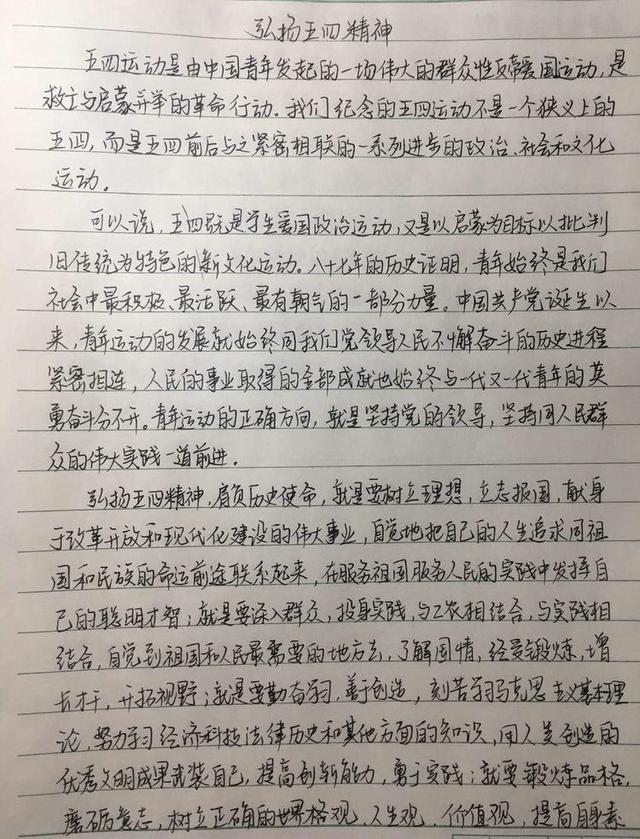 弘扬五四精神
五四运动是由中国青年发起的一场伟大的群众性反帝爱国运动,是
救亡与启蒙并举的革命行动.我们纪念的五四运动不是一个狭义上的
五四,而是五四前后与之紧密相联的一系列进步的政治、社会和文化
运动。
可以说,五四既是学生爱国政治运动,又是以启蒙为目标以批判
旧传统为特色的新文化运动。八十七年的历史证明,青年始终是我们
社会中最积极、最活跃、最有朝气的一部分力量。中国共产党诞生以
来,青年运动的发展就始终同我们党领导人民不懈奋斗的历史进程
紧密相连,人民的事业取得的全部成就也始终与一代又一代青年的英
勇奋斗分不开。青年运动的正确方向,就是坚持党的领导,坚持同人民群
众的伟大实践一道前进.
弘扬五四精神,肩负历史使命,就是要树立理想,立志报国,献身
于改革开放和现代化建设的伟大事业,自觉地把自己的人生追求同祖
国和民族的命运前途联系起来,在服务祖国服务人民的实践中发挥自
己的聪明才智;就是要深入群众,投身实践,与工农相结合,与实践相
结合,自觉到祖国和人民最需要的地方去,了解国情,经受锻炼,增
长才干,开拓视野;就是要勤奋学习,善于创造,刻苦学习马克思主义基本理
论,努力学习经济科技法律历史和其他方面的知识,用人类创造的
优秀文明成果武装自己,提高创新能力,勇于实践;就要锻炼品格,
磨砺意志,树立正确的世界观,人生观,价值观,提高自身素